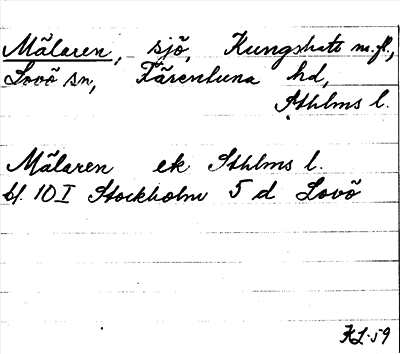 Mälaren, sjö, Kungshatt m.fl.,
Lovö sn, Färentuna hd,
Sthlms l.
Mälaren ek Sthlms l.
bl. 10 I Stockholm 5 d Lovö
KL-59